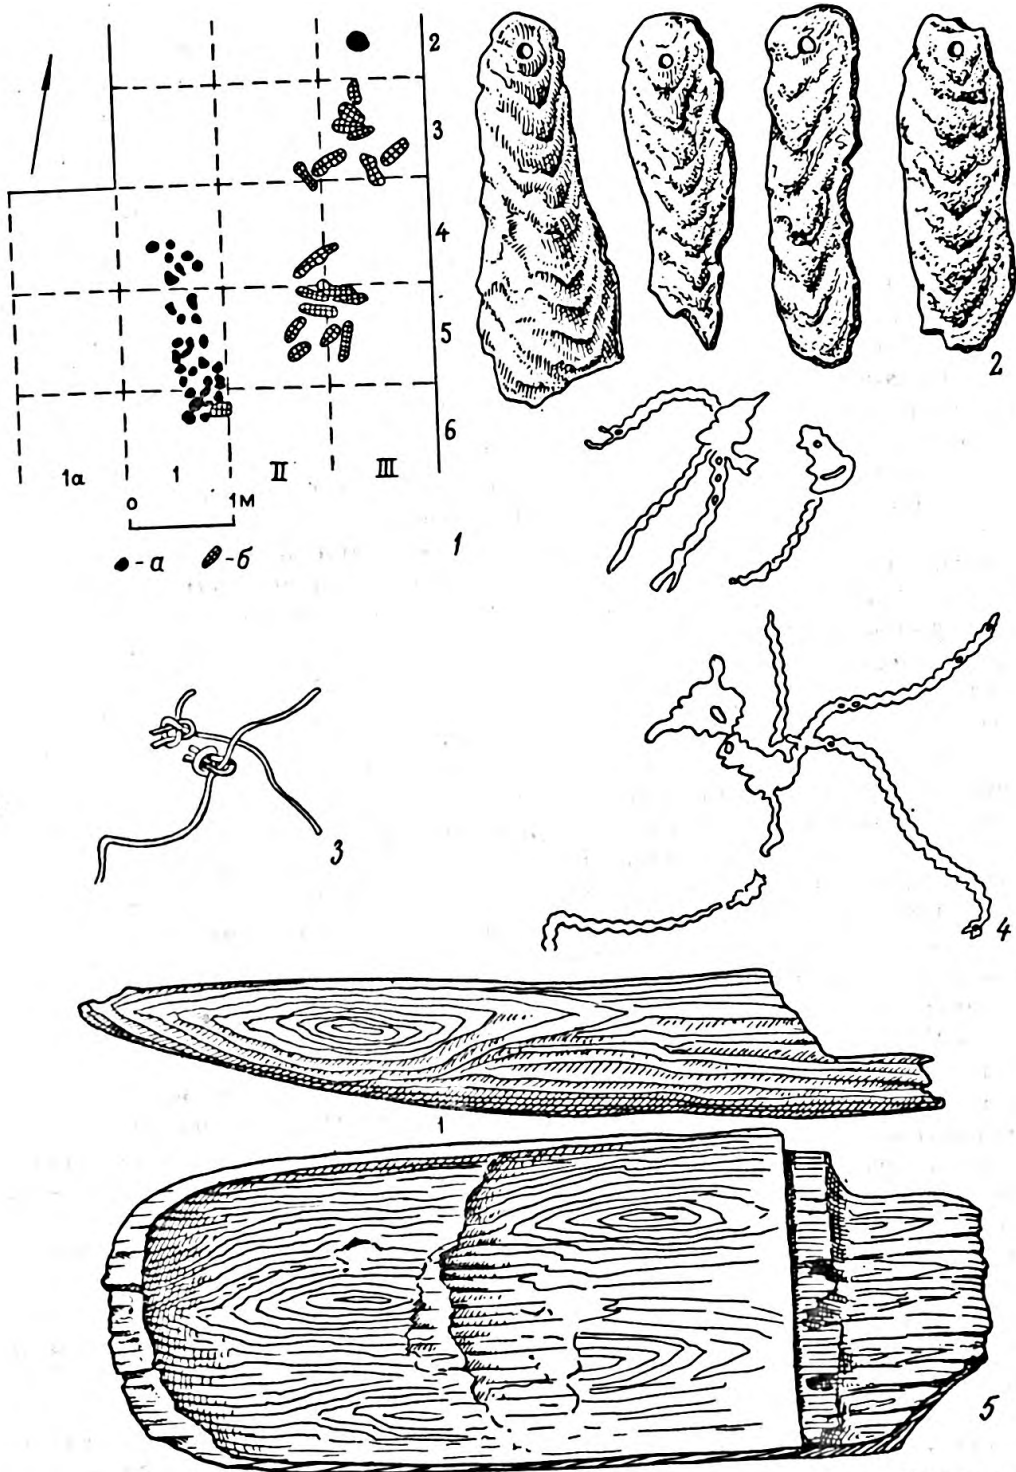 2
3
4
5
6
1а 1 II III
0 1м
- а - б
1
2
3
4
1
5